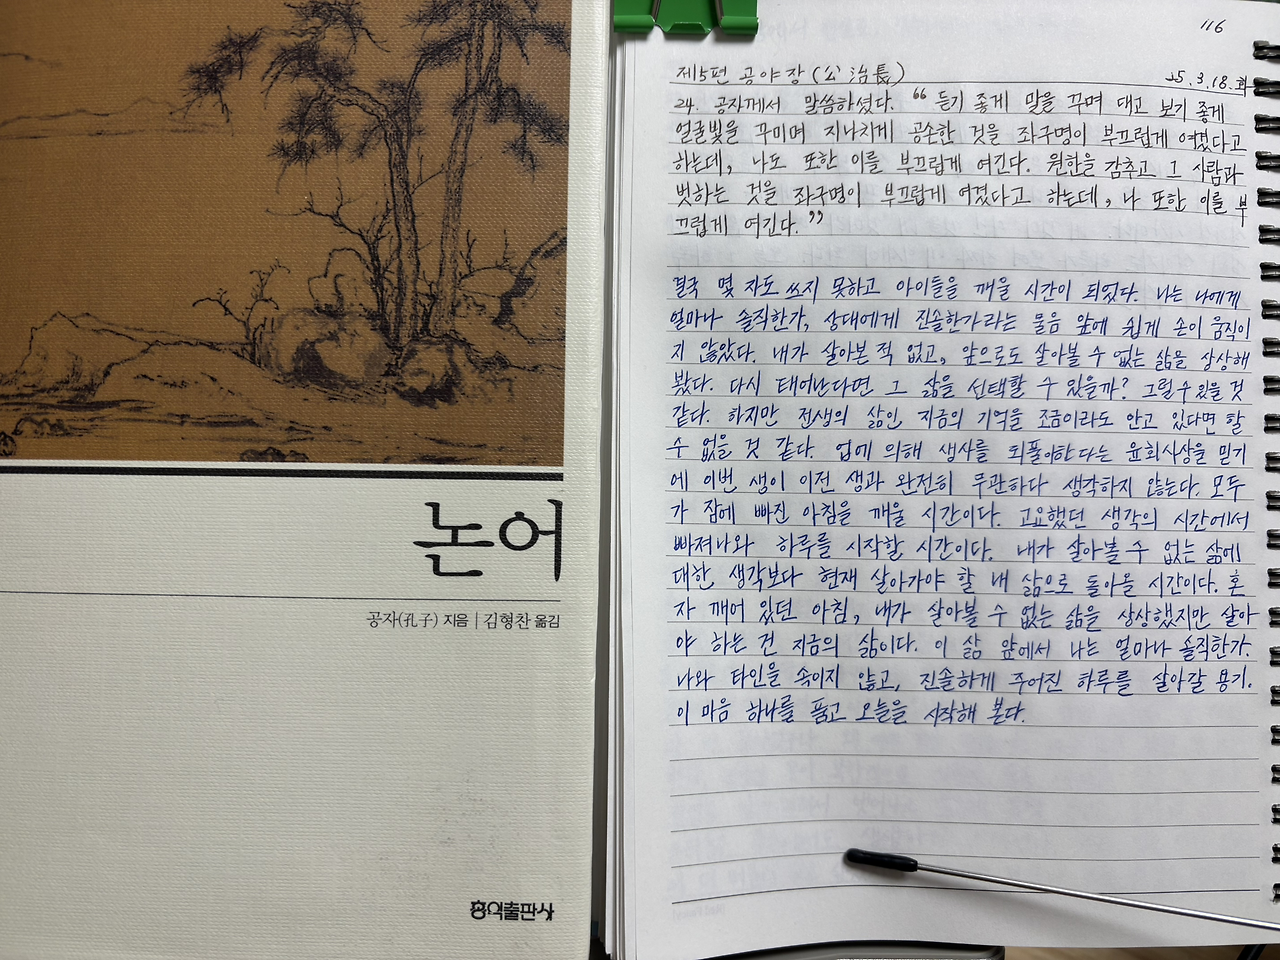 논어
공자(孔子) 지음 | 김형찬 옮김
홍익출판사
116
제5편 공야장(公冶長)
25.3.18.화
24. 공자께서 말씀하셨다. “듣기 좋게 말을 꾸며 대고 보기 좋게
얼굴빛을 꾸미며 지나치게 공손한 것을 좌구명이 부끄럽게 여겼다고
하는데, 나도 또한 이를 부끄럽게 여긴다. 원한을 감추고 그 사람과
벗하는 것을 좌구명이 부끄럽게 여겼다고 하는데, 나 또한 이를 부
끄럽게 여긴다.”
결국 몇 자도 쓰지 못하고 아이들을 깨울 시간이 되었다. 나는 나에게
얼마나 솔직한가, 상대에게 진솔한가라는 물음 앞에 쉽게 손이 움직이
지 않았다. 내가 살아본 적 없고, 앞으로도 살아볼 수 없는 삶을 상상해
봤다. 다시 태어난다면 그 삶을 선택할 수 있을까? 그럴 수 있을 것
같다. 하지만 전생의 삶인 지금의 기억을 조금이라도 안고 있다면 할
수 없을 것 같다. 업에 의해 생사를 되풀이한다는 윤회사상을 믿기
에 이번 생이 이전 생과 완전히 무관하다 생각하지 않는다. 모두
가 잠에 빠진 아침을 깨울 시간이다. 고요했던 생각의 시간에서
빠져나와 하루를 시작할 시간이다. 내가 살아볼 수 없는 삶에
대한 생각보다 현재 살아가야 할 내 삶으로 돌아올 시간이다. 혼
자 깨어 있던 아침, 내가 살아볼 수 없는 삶을 상상했지만 살아
야 하는 건 지금의 삶이다. 이 삶 앞에서 나는 얼마나 솔직한가.
나와 타인을 속이지 않고, 진솔하게 주어진 하루를 살아갈 용기.
이 마음 하나를 품고 오늘을 시작해 본다.